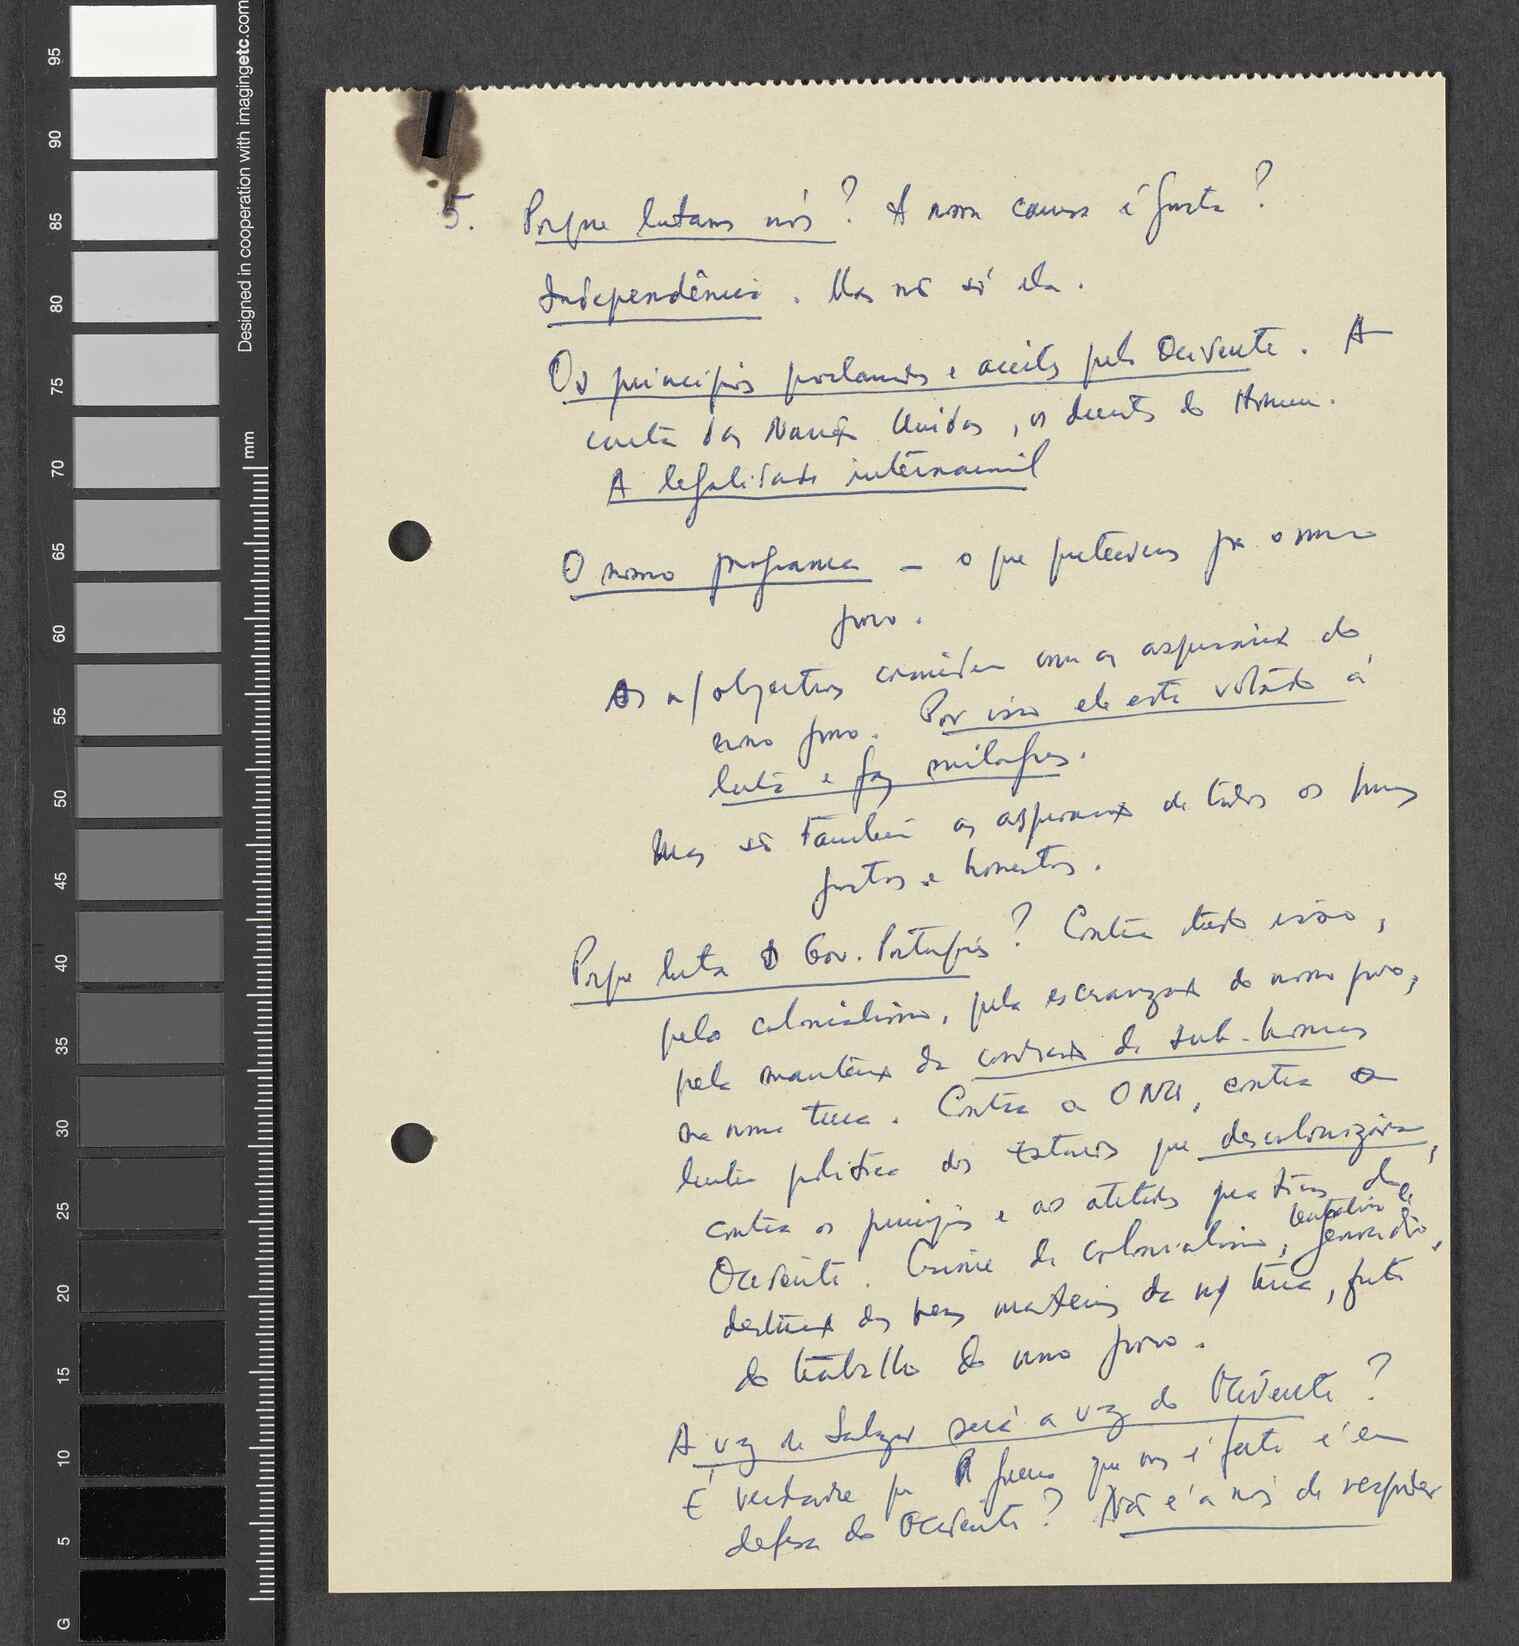 5. Porque lutamos nós? A nossa causa é justa?
Independência. Mas não só ela.
Os princípios proclamados e aceites pelo Ocidente. A
carta das Nações Unidas, os direitos do Homem.
A legalidade internacional
O nosso programa – o que pretendemos para o nosso
povo.
Os n/objectivos coincidem com as aspirações do
nosso povo. Por isso ele está votado à
luta e faz milagres.
Mas são também as aspirações de todos os povos
justos e honestos.
Porque luta o Gov. Português? Contra tudo isso,
pelo colonialismo, pela escravização do nosso povo,
pela manutenção da condição de sub-homens
na nossa terra. Contra a ONU, contra a
lenta política dos Estados que descolonizaram,
contra os princípios e as atitudes práticas do
Ocidente. Crime de colonialismo, tentativa de genocídio,
destruição dos bens materiais da n/ terra, fruto
do trabalho do nosso povo.
A voz de Salazar será a voz do Ocidente?
É verdade que a guerra que nos é feita é em
defesa do Ocidente? Não é a nós de responder
95
90
85
80
75
70
65
60
55
50
45
40
35
30
25
20
15
10
5
G
mm
Designed in cooperation with imagingetc.com